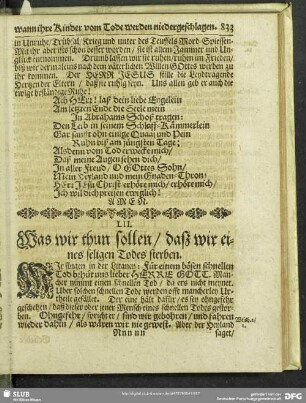 wann ihre Kinder vom Tode werden niedergeschlagen. 833
in Unruhe/ Trübsal/ Krieg und unter des Teuffels Mord-Spiessen.
Mit ihr aber ists schon besser worden/ sie ist allem Jammer und Un-
glück entnommen. Drumb lassen wir sie ruhen/ ruhen im Frieden/
biß wir dermaleins nach dem väterlichen Willen Gottes werden zu
ihr kommen. Der HERR JESUS stille die Leydtragende
Hertzen der Eltern/ daß sie ruhig seyn. Uns allen geb er auch die
ewige beständige Ruhe!
Ach HErr! laß dein liebe Engelein
Am letzten Ende die Seele mein
In Abrahams Schoß tragen:
Den Leib in seinem Schlaff-Kämmerlein
Gar sanfft ohn einige Quaal und Pein
Ruhn biß am jüngsten Tage;
Alsdenn vom Tod erwecke mich/
Daß meine Augen sehen dich/
In aller Freud/ O GOttes Sohn/
Mein Heyland und mein Gnaden-Thron/
HErr JEsu Christ erhöre mich/ erhöre mich/
Ich will dich preisen ewiglich!
AMEN.
LII.
Was wir thun sollen/ daß wir ei-
nes seligen Todes sterben.
WIr singen in der Litaney: Für einem bösen schnellen
Tod behüt uns lieber HERRE GOTT. Man-
cher nimmt einen schnellen Tod/ da ers nicht meynet.
Uber solchen schnellen Tode werden offt mancherley Ur-
theile gefället. Der eine hält dafür/ es sey ohngefehr
geschehen/ daß dieser oder jener Mensch eines schnellen Todes gestor-
ben. Ohngefehr/ spricht er/ sind wir gebohren/ und fahren
wieder dahin/ als wären wir nie gewest. Aber der Heyland
Nnn nn saget/